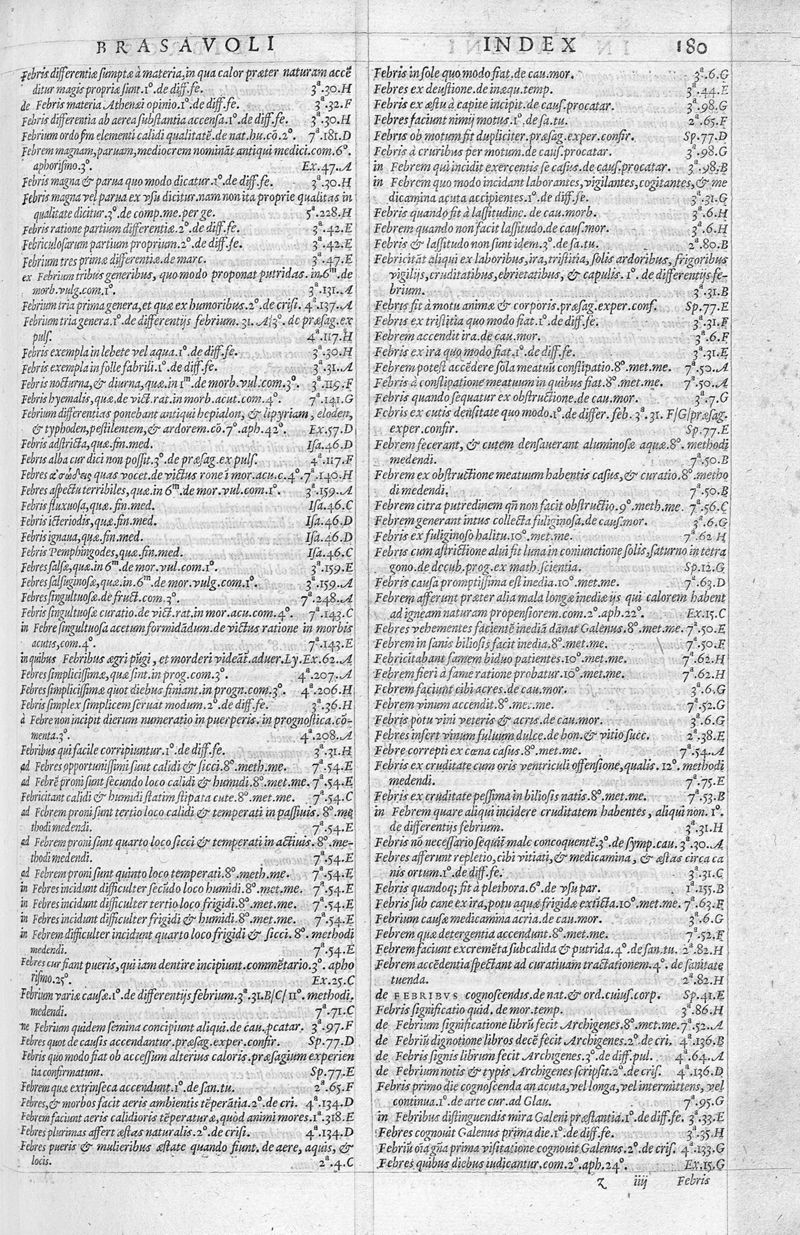 BRASAVOLI
Febris differentiæ sumptæ à materia, in qua calor præter naturam accē
ditur magis propriæ sunt. 1°. de diff. fe. 3ª.30.H
de Febris materia Athenæi opinio. 1°. de diff. fe. 3ª.32.F
Febris differentia ab aerea substantia accensa. 1°. de diff. fe. 3ª.30.H
Febrium ordo p̄m elementi calidi qualitatē. de nat. hu. cō. 2°. 7ª.181.D
Febrem magnam, paruam, mediocrem nomināt antiqui medici. com. 6°.
aphorismo. 3°. Ex.47.A
Febris magna & parua quo modo dicatur. 1°. de diff. fe. 3ª.30.H
Febris magna vel parua ex vsu dicitur. nam non ita proprie qualitas in
qualitate dicitur. 3°. de comp. me. per ge. 5ª.228.H
Febris ratione partium differentiæ. 2°. de diff. fe. 3ª.42.E
Febriculosarum partium proprium. 2°. de diff. fe. 3ª.42.E
Febrium tres primæ differentiæ. de marc. 3ª.47.E
ex Febrium tribus generibus, quo modo proponat putridas. in. 6ᵐ. de
morb. vulg. com. 1°. 3ª.131.A
Febrium tria prima genera, et quæ ex humoribus. 2°. de crisi. 4ª.137.A
Febrium tria genera. 1°. de differentijs febrium. 31. A/3°. de præsag. ex
puls. 4ª.117.H
Febris exempla in lebete vel aqua. 1°. de diff. fe. 3ª.30.H
Febris exempla in folle fabrili. 1°. de diff. fe. 3ª.31.A
Febris nocturna, & diurna, quæ. in 1ᵐ. de morb. vul. com. 3°. 3ª.119.F
Febris hyemalis, quæ. de vict. rat. in morb. acut. com. 4°. 7ª.141.G
Febrium differentias ponebant antiqui hepialon, & lipyriam, eloden,
& typhoden, pestilentem, & ardorem. cō. 7°. aph. 42°. Ex.57.D
Febris adstricta, quæ. fin. med. Isa.46.D
Febris alba cur dici non possit. 3°. de præsag. ex puls. 4ª.117.F
Febres quas vocet. de victus rone i mor. acu. c. 4°. 7ª.140.H
Febres aspectu terribiles, quæ. in 6ᵐ. de mor. vul. com. 1°. 3ª.159.A
Febris fluxuosa, quæ. fin. med. Isa.46.C
Febris icteriodis, quæ. fin. med. Isa.46.D
Febris ignaua, quæ. fin. med. Isa.46.D
Febris Pemphingodes, quæ. fin. med. Isa.46.C
Febres salsæ, quæ. in 6ᵐ. de mor. vul. com. 1°. 3ª.159.E
Febres salsuginosæ, quæ. in. 6ᵐ. de mor. vulg. com. 1°. 3ª.159.A
Febres singultuosæ. de fruct. com. 3°. 7ª.248.A
Febris singultuosæ curatio. de vict. rat. in mor. acu. com. 4°. 7ª.143.C
in Febre singultuosa acetum formidādum. de victus ratione in morbis
acutis, com. 4°. 7ª.143.E
in quibus Febribus ægri pūgi, et morderi videāt. aduer. Ly. Ex.62.A
Febres simplicissimæ, quæ sint. in prog. com. 3°. 4ª.207.A
Febres simplicissimæ quot diebus finiant. in progn. com. 3°. 4ª.206.H
Febris simplex simplicem seruat modum. 2°. de diff. fe. 3ª.36.H
à Febre non incipit dierum numeratio in puerperis. in prognostica. cō-
menta. 3°. 4ª.208.A
Febribus qui facile corripiuntur. 1°. de diff. fe. 3ª.31.H
ad Febres opportunissimi sunt calidi & sicci. 8°. meth. me. 7ª.54.E
ad Febrē proni sunt secundo loco calidi & humidi. 8°. met. me. 7ª.54.E
Febricitant calidi & humidi statim stipata cute. 8°. met. me. 7ª.54.C
ad Febrem proni sunt tertio loco calidi & temperati in passiuis. 8°. me
thodi medendi. 7ª.54.E
ad Febrem proni sunt quarto loco sicci & temperati in actiuis. 8°. me-
thodi medendi. 7ª.54.E
ad Febrem proni sunt quinto loco temperati. 8°. meth. me. 7ª.54.E
in Febres incidunt difficulter secūdo loco humidi. 8°. met. me. 7ª.54.E
in Febres incidunt difficulter tertio loco frigidi. 8°. met. me. 7ª.54.E
in Febres incidunt difficulter frigidi & humidi. 8°. met. me. 7ª.54.E
in Febrem difficulter incidunt quarto loco frigidi & sicci. 8°. methodi
medendi. 7ª.54.E
Febres cur fiant pueris, qui iam dentire incipiunt. commētario. 3°. apho
rismo. 25°. Ex.25.C
Febrium variæ causæ. 1°. de differentijs febrium. 3ª.31.B/C/11°. methodi.
medendi. 7ª.71.C
ne Febrium quidem semina concipiunt aliqui. de cau. pcatar. 3ª.97.F
Febres quot de causis accendantur. præsag. exper. confir. Sp.77.D
Febris quo modo fiat ob accessum alterius caloris. præsagium experien
tia confirmatum. Sp.77.E
Febrem quæ extrinseca accendunt. 1°. de san. tu. 2ª.65.F
Febres, & morbos facit aeris ambientis tēperātia. 2°. de cri. 4ª.134.D
Febrem faciunt aeris calidioris tēperaturæ, quòd animi mores. 1ª.318.E
Febres plurimas affert æstas naturalis. 2°. de crisi. 4ª.134.D
Febres pueris & mulieribus æstate quando fiunt. de aere, aquis, &
locis. 2ª.4.C
INDEX 180
Febris in sole quo modo fiat. de cau. mor. 3ª.6.G
Febres ex deustione. de inæqu. temp. 3ª.44.E
Febris ex æstu à capite incipit. de caus. procatar. 3ª.98.G
Febres faciunt nimij motus. 1°. de sa. tu. 2ª.65.F
Febris ob motum fit dupliciter. præsag. exper. confir. Sp.77.D
Febris à cruribus per motum. de caus. procatar. 3ª.98.G
in Febrem qui incidit exercentis se casus. de caus. procatar. 3ª.98.B
in Febrem quo modo incidant laborantes, vigilantes, cogitantes, & me
dicamina acuta accipientes. 1°. de diff. fe. 3ª.31.G
Febris quando fit à lassitudine. de cau. morb. 3ª.6.H
Febrem quando non facit lassitudo. de caus. mor. 3ª.6.H
Febris & lassitudo non sunt idem. 3°. de sa. tu. 2ª.80.B
Febricitāt aliqui ex laboribus, ira, tristitia, solis ardoribus, frigoribus
vigilijs, cruditatibus, ebrietatibus, & capulis. 1°. de differentijs fe-
brium. 3ª.31.B
Febris fit à motu animæ & corporis. præsag. exper. conf. Sp.77.E
Febris ex tristitia quo modo fiat. 1°. de diff. fe. 3ª.31.F
Febrem accendit ira. de cau. mor. 3ª.6.F
Febris ex ira quo modo fiat. 1°. de diff. fe. 3ª.31.E
Febrem potest accēdere sola meatuū constipatio. 8°. met. me. 7ª.50.A
Febris à constipatione meatuum in quibus fiat. 8°. met. me. 7ª.50.A
Febris quando sequatur ex obstructione. de cau. mor. 3ª.7.G
Febris ex cutis densitate quo modo. 1°. de differ. feb. 3ª.31. F/G/præsag.
exper. confir. Sp.77.E
Febrem fecerant, & cutem densauerant aluminosæ aquæ. 8°. methodi
medendi. 7ª.50.B
Febrem ex obstructione meatuum habentis casus, & curatio. 8°. metho
di medendi. 7ª.50.B
Febrem citra putredinem qñ non facit obstructio. 9°. meth. me. 7ª.56.C
Febrem generant intus collecta fuliginosa. de caus. mor. 3ª.6.G
Febris ex fuliginoso halitu. 10°. met. me. 7ª.62 H
Febris cum astrictione alui fit luna in coniunctione solis, saturno in tetra
gono. de decub. prog. ex math. scientia. Sp.12.G
Febris causa promptissima est inedia. 10°. met. me. 7ª.63.D
Febrem afferunt præter alia mala longæ inediæ ijs qui calorem habent
ad igneam naturam propensiorem. com. 2°. aph. 22°. Ex.15.C
Febres vehementes facientē inediā dānat Galenus. 8°. met. me. 7ª.50.E
Febrem in sanis biliosis facit inedia. 8°. met. me. 7ª.50.E
Febricitabant famem biduo patientes. 10°. met. me. 7ª.62.H
Febrem fieri à fame ratione probatur. 10°. met. me. 7ª.62.H
Febrem faciunt cibi acres. de cau. mor. 3ª.6.G
Febrem vinum accendit. 8°. met. me. 7ª.52.G
Febris potu vini veteris & acris. de cau. mor. 3ª.6.G
Febres infert vinum fuluum dulce. de bon. & vitio succ. 2ª.38.E
Febre correpti ex cœna casus. 8°. met. me. 7ª.54.A
Febris ex cruditate cum oris ventriculi offensione, qualis. 12°. methodi
medendi. 7ª.75.E
Febris ex cruditate pessima in biliosis natis. 8°. met. me. 7ª.53.B
in Febrem quare aliqui incidere cruditatem habentes, aliqui non. 1°.
de differentijs febrium. 3ª.31.H
Febris nō necessario sequit male concoquentē. 3°. de symp. cau. 3ª.30.A
Febres afferunt repletio, cibi vitiati, & medicamina, & æstas circa ca
nis ortum. 1°. de diff. fe. 3ª.31.C
Febris quandoq; fit à plethora. 6°. de vsu par. 1ª.155.B
Febris sub cane ex ira, potu aquæ frigidæ extīcta. 10°. met. me. 7ª.63.F
Febrium causæ medicamina acria. de cau. mor. 3ª.6.G
Febrem quæ detergentia accendunt. 8°. met. me. 7ª.52.F
Febrem faciunt excremēta subcalida & putrida. 4°. de san. tu. 2ª.82.H
Febrem accēdentia spectant ad curatiuam tractationem. 4°. de sanitate
tuenda. 2ª.82.H
de FEBRIBVS cognoscendis. de nat. & ord. cuius. corp. Sp.41.E
Febris significatio quid. de mor. temp. 3ª.86.H
de Febrium significatione librū fecit Archigenes. 8°. met. me. 7ª.52.A
de Febriū dignotione libros decē fecit Archigenes. 2°. de cri. 4ª.136.B
de Febris signis librum fecit Archigenes. 3°. de diff. pul. 4ª.64.A
de Febrium notis & typis Archigenes scripsit. 2°. de cris. 4ª.136.D
Febris primo die cognoscenda an acuta, vel longa, vel intermittens, vel
continua. 1°. de arte cur. ad Glau. 7ª.95.G
in Febribus distinguendis mira Galeni præstantia. 1°. de diff. fe. 3ª.33.E
Febres cognouit Galenus prima die. 1°. de diff. fe. 3ª.35.H
Febriū oīa gña prima visitatione cognouit Galenus. 2°. de cris. 4ª.133.G
Febres quibus diebus iudicantur. com. 2°. aph. 24°. Ex.15.G
Z iiij Febris